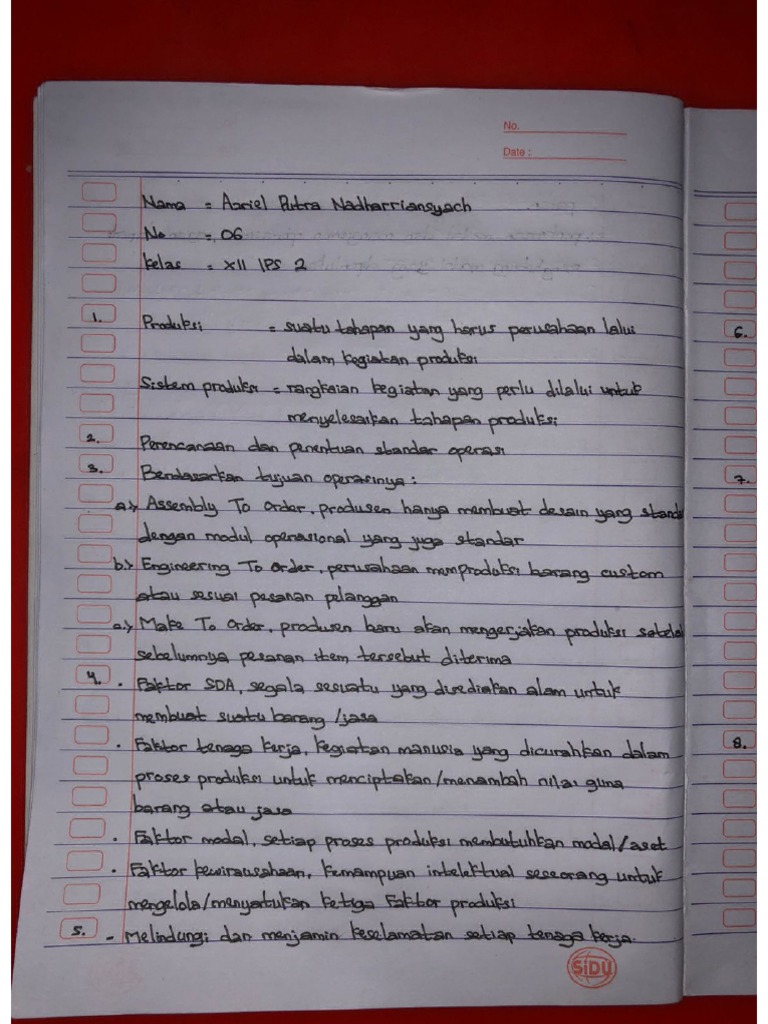 No.
Date :
Nama = Azriel Putra Nadharriansyach
No = 06
Kelas = XII IPS 2
1. Produksi = suatu tahapan yang harus perusahaan lalui
dalam kegiatan produksi
Sistem produksi = rangkaian kegiatan yang perlu dilalui untuk
menyelesaikan tahapan produksi
2. Perencanaan dan penentuan standar operasi
3. Berdasarkan tujuan operasinya :
a.) Assembly To Order, produsen hanya membuat desain yang standa
dengan modul operasional yang juga standar
b.) Engineering To Order, perusahaan memproduksi barang custom
atau sesuai pesanan pelanggan
c.) Make To Order, produsen baru akan mengerjakan produksi setela
sebelumnya pesanan item tersebut diterima
4. • Faktor SDA, segala sesuatu yang disediakan alam untuk
membuat suatu barang/jasa
• Faktor tenaga kerja, kegiatan manusia yang dicurahkan dalam
proses produksi untuk menciptakan/menambah nilai guna
barang atau jasa
• Faktor modal, setiap proses produksi membutuhkan modal/aset
• Faktor kewirausahaan, kemampuan intelektual seseorang untuk
mengelola/menyatukan ketiga faktor produksi
5. - Melindungi dan menjamin keselamatan setiap tenaga kerja.
SiDU
6.
7.
8.